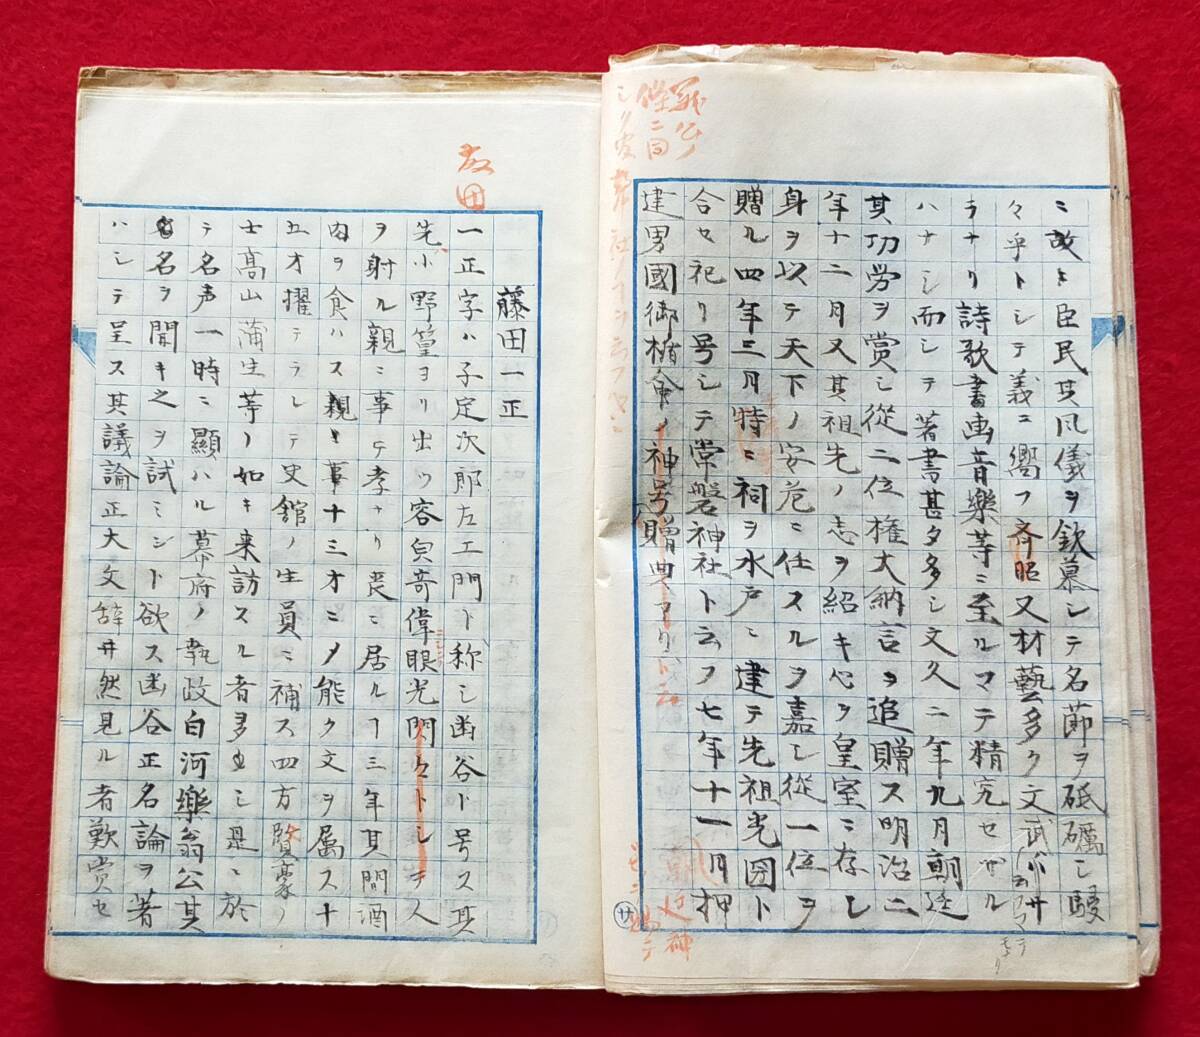 ニ故ニ臣民其凡儀ヲ欽慕シテ名節ヲ砥礪シ駸
々乎トシテ義ニ嚮フ斉昭又材藝多ク文武
ラナリ詩歌書画音樂等ニ至ルマテ精究セサル
ハナシ而シテ著書甚タ多シ文久二年九月朝廷
其功労ヲ賞シ從二位権大納言ヲ追贈ス明治二
年十二月又其祖先ノ志ヲ紹キ心ヲ皇室ニ存シ
身ヲ以テ天下ノ安危ニ任スルヲ嘉シ從一位ヲ
贈ル四年三月特ニ祠ヲ水戸ニ建テ先祖光圀ト
合セ祀リ号シテ常磐神社ト云フ七年十一月押
建男國御楯命ノ神号贈典アリト云
藤田
藤田一正
一正字ハ子定次郎左エ門ト称シ幽谷ト号ス其
先小野篁ヨリ出ツ容貌奇偉眼光閃々トシテ人
ヲ射ル親ニ事ヘテ孝ナリ喪ニ居ルヿ三年其間酒
肉ヲ食ハス親ヒ事十三才ニメ能ク文ヲ属ス十
五才擢テラレテ史館ノ生員ニ補ス四方賢豪ノ
士高山蒲生等ノ如キ来訪スル者多シ是ニ於
テ名声一時ニ顯ハル幕府ノ執政白河樂翁公其
名ヲ聞キ之ヲ試ミント欲ス幽谷正名論ヲ著
ハシテ呈ス其議論正大文辞井然見ル者歎賞セ